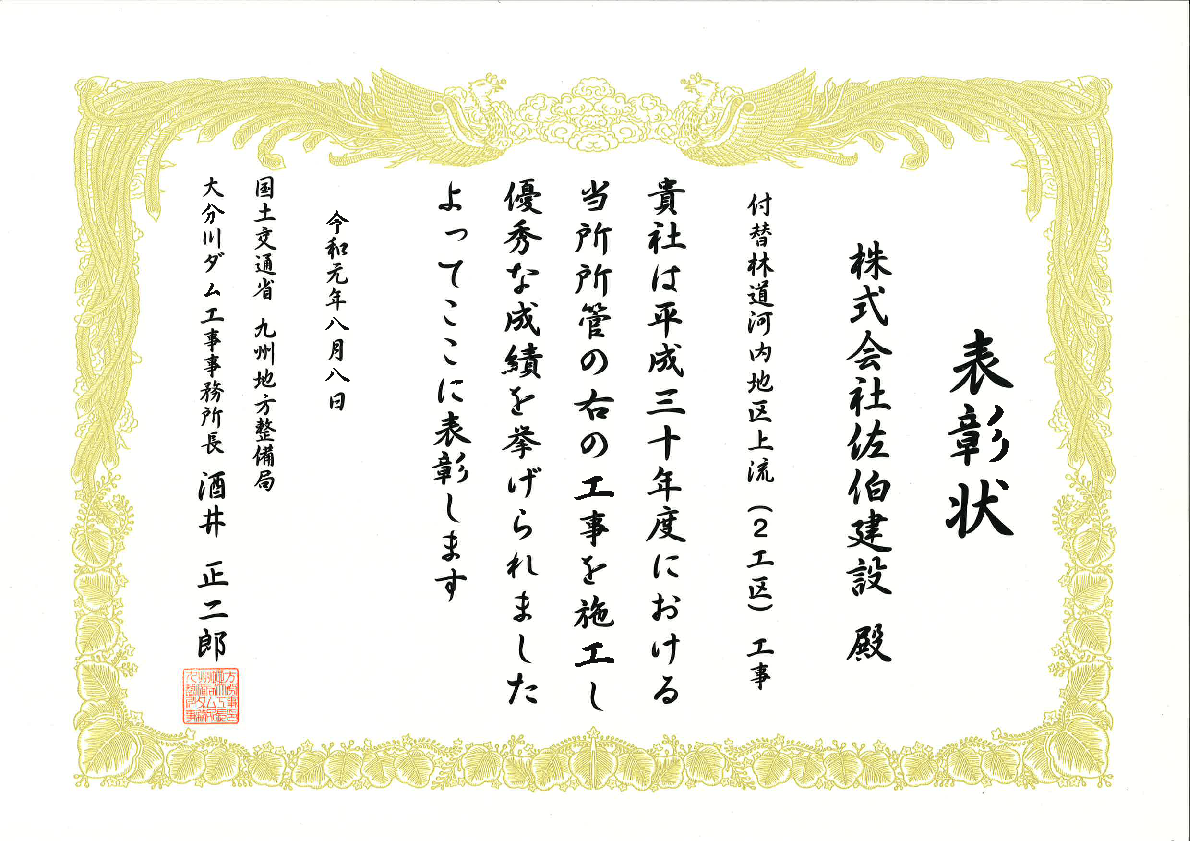 表彰状
株式会社佐伯建設 殿
付替林道河内地区上流（２工区）工事
貴社は平成三十年度における
当所所管の右の工事を施工し
優秀な成績を挙げられました
よってここに表彰します
令和元年八月八日
国土交通省 九州地方整備局
大分川ダム工事事務所長 酒井 正二郎